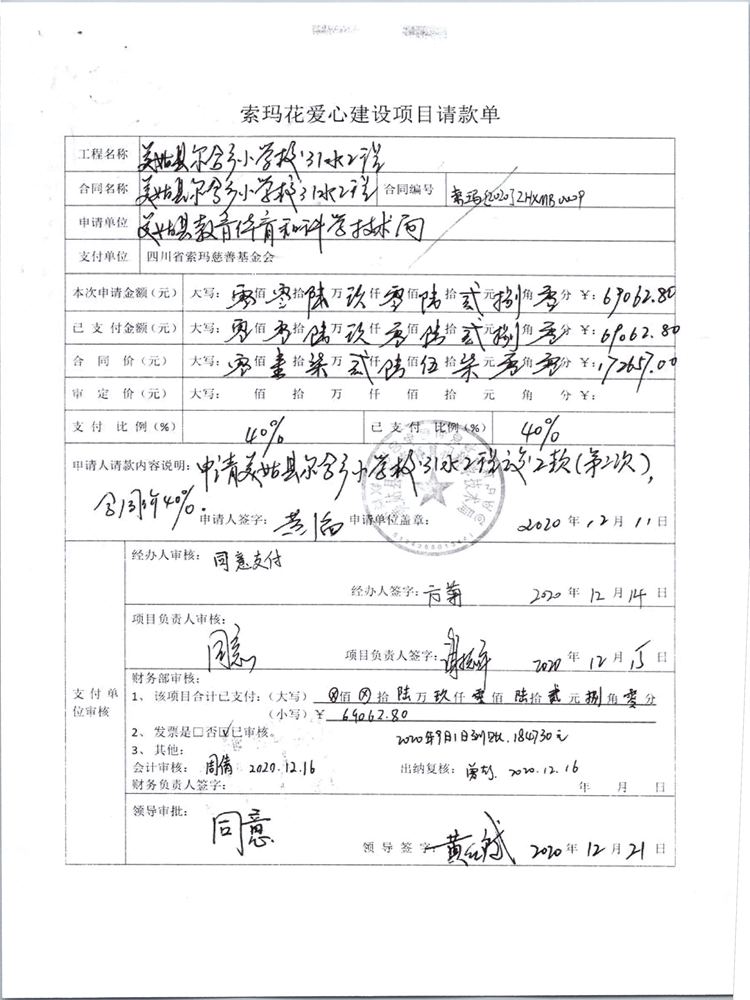 索玛花爱心建设项目请款单
工程名称 美姑县尔合乡小学校引水工程
合同名称 美姑县尔合乡小学校引水工程 合同编号 索玛[2020]ZHXMB0009
申请单位 美姑县教育体育和科学技术局
支付单位 四川省索玛慈善基金会
本次申请金额（元） 大写：零佰零拾陆万玖仟零佰陆拾贰元捌角零分 ￥：69062.80
已支付金额（元） 大写：零佰零拾陆万玖仟零佰陆拾贰元捌角零分 ￥：69062.80
合同价（元） 大写：零佰壹拾柒万贰仟陆佰伍拾柒元零角零分 ￥：172657.00
审定价（元） 大写： 佰 拾 万 仟 佰 拾 元 角 分 ￥：
支付比例（%） 40% 已支付比例（%） 40%
申请人请款内容说明：申请美姑县尔合乡小学校引水工程施工款（第二次），
合同价40%.
申请人签字： 申请单位盖章： 2020年12月11日
支付单位审核
经办人审核： 同意支付
经办人签字：方菊 2020年12月14日
项目负责人审核：
同意
项目负责人签字： 2020年12月15日
财务部审核：
1、该项目合计已支付：（大写） ⊗佰⊗拾陆万玖仟零佰陆拾贰元捌角零分
（小写）￥ 69062.80
2、发票是□否☑已审核。 2020年9月1日到票，184730元
3、其他：
会计审核： 周倩 2020.12.16 出纳复核： 2020.12.16
财务负责人签字： 年 月 日
领导审批：
同意
领导签字： 2020年12月21日